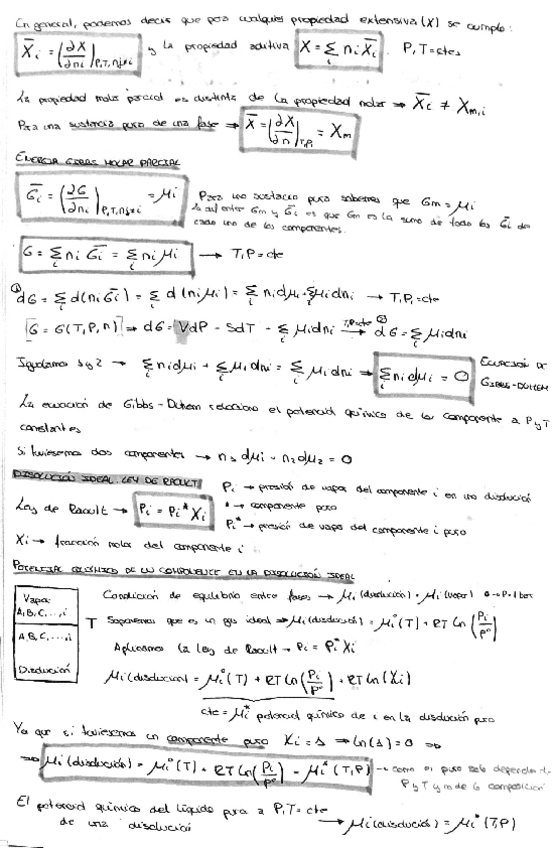 En general, podemos decir que para cualquier propiedad extensiva (X) se cumple:
X̄i = (∂X/∂ni)P,T,nj≠i y la propiedad aditiva X = Σi ni X̄i P,T=ctes
La propiedad molar parcial es distinta de la propiedad molar ⇒ X̄i ≠ Xm,i
Para una sustancia pura de una fase ⇒ X̄ = (∂X/∂n)T,P = Xm
ENERGÍA GIBBS MOLAR PARCIAL
Ḡi = (∂G/∂ni)P,T,nj≠i = μi Para una sustancia pura sabemos que Gm = μi
Gm y Ḡi es que Gm es la suma de todos los Ḡi de
cada uno de los componentes.
G = Σi ni Ḡi = Σi ni μi → T,P = cte
① dG = Σi d(ni Ḡi) = Σi d(ni μi) = Σi ni dμi + Σi μi dni → T,P = cte
[G = G(T,P,n)] ⇒ dG = VdP - SdT - Σi μi dni →T,P=cte ② dG = Σi μi dni
Igualamos 1 y 2 → Σi ni dμi + Σi μi dni = Σi μi dni ⇒ Σi ni dμi = 0 ECUACIÓN DE
GIBBS-DUHEM
La ecuación de Gibbs-Duhem relaciona el potencial químico de los componentes a P y T
constantes
Si tuviésemos dos componentes → n1 dμ1 + n2 dμ2 = 0
DISOLUCIÓN IDEAL. LEY DE RAOULT
Pi → presión de vapor del componente i en una disolución
Ley de Raoult → Pi = Pi* Xi
* → componente puro
Pi* → presión de vapor del componente i puro
Xi → fracción molar del componente i
POTENCIAL QUÍMICO DE UN COMPONENTE EN LA DISOLUCIÓN IDEAL
Vapor
A, B, C, ..., i
A, B, C, ..., i
Disolución
T
Condición de equilibrio entre fases → μi (disolución) = μi (vapor) 0→P=1 bar
Suponemos que es un gas ideal ⇒ μi (disolución) = μi°(T) + RT Ln(Pi/P°)
Aplicamos la ley de Raoult → Pi = Pi* Xi
μi (disolución) = μi°(T) + RT Ln(Pi/P°) + RT Ln(Xi)
cte = μi* potencial químico de i en la disolución pura
Ya que si tuviésemos un componente puro Xi = 1 ⇒ Ln(1) = 0 ⇒
⇒ μi (disolución) = μi°(T) + RT Ln(Pi/P°) = μi*(T,P) → como es puro solo depende de
P y T y no de composición
El potencial químico del líquido puro a P,T = cte
de una disolución → μi (disolución) = μi*(T,P)